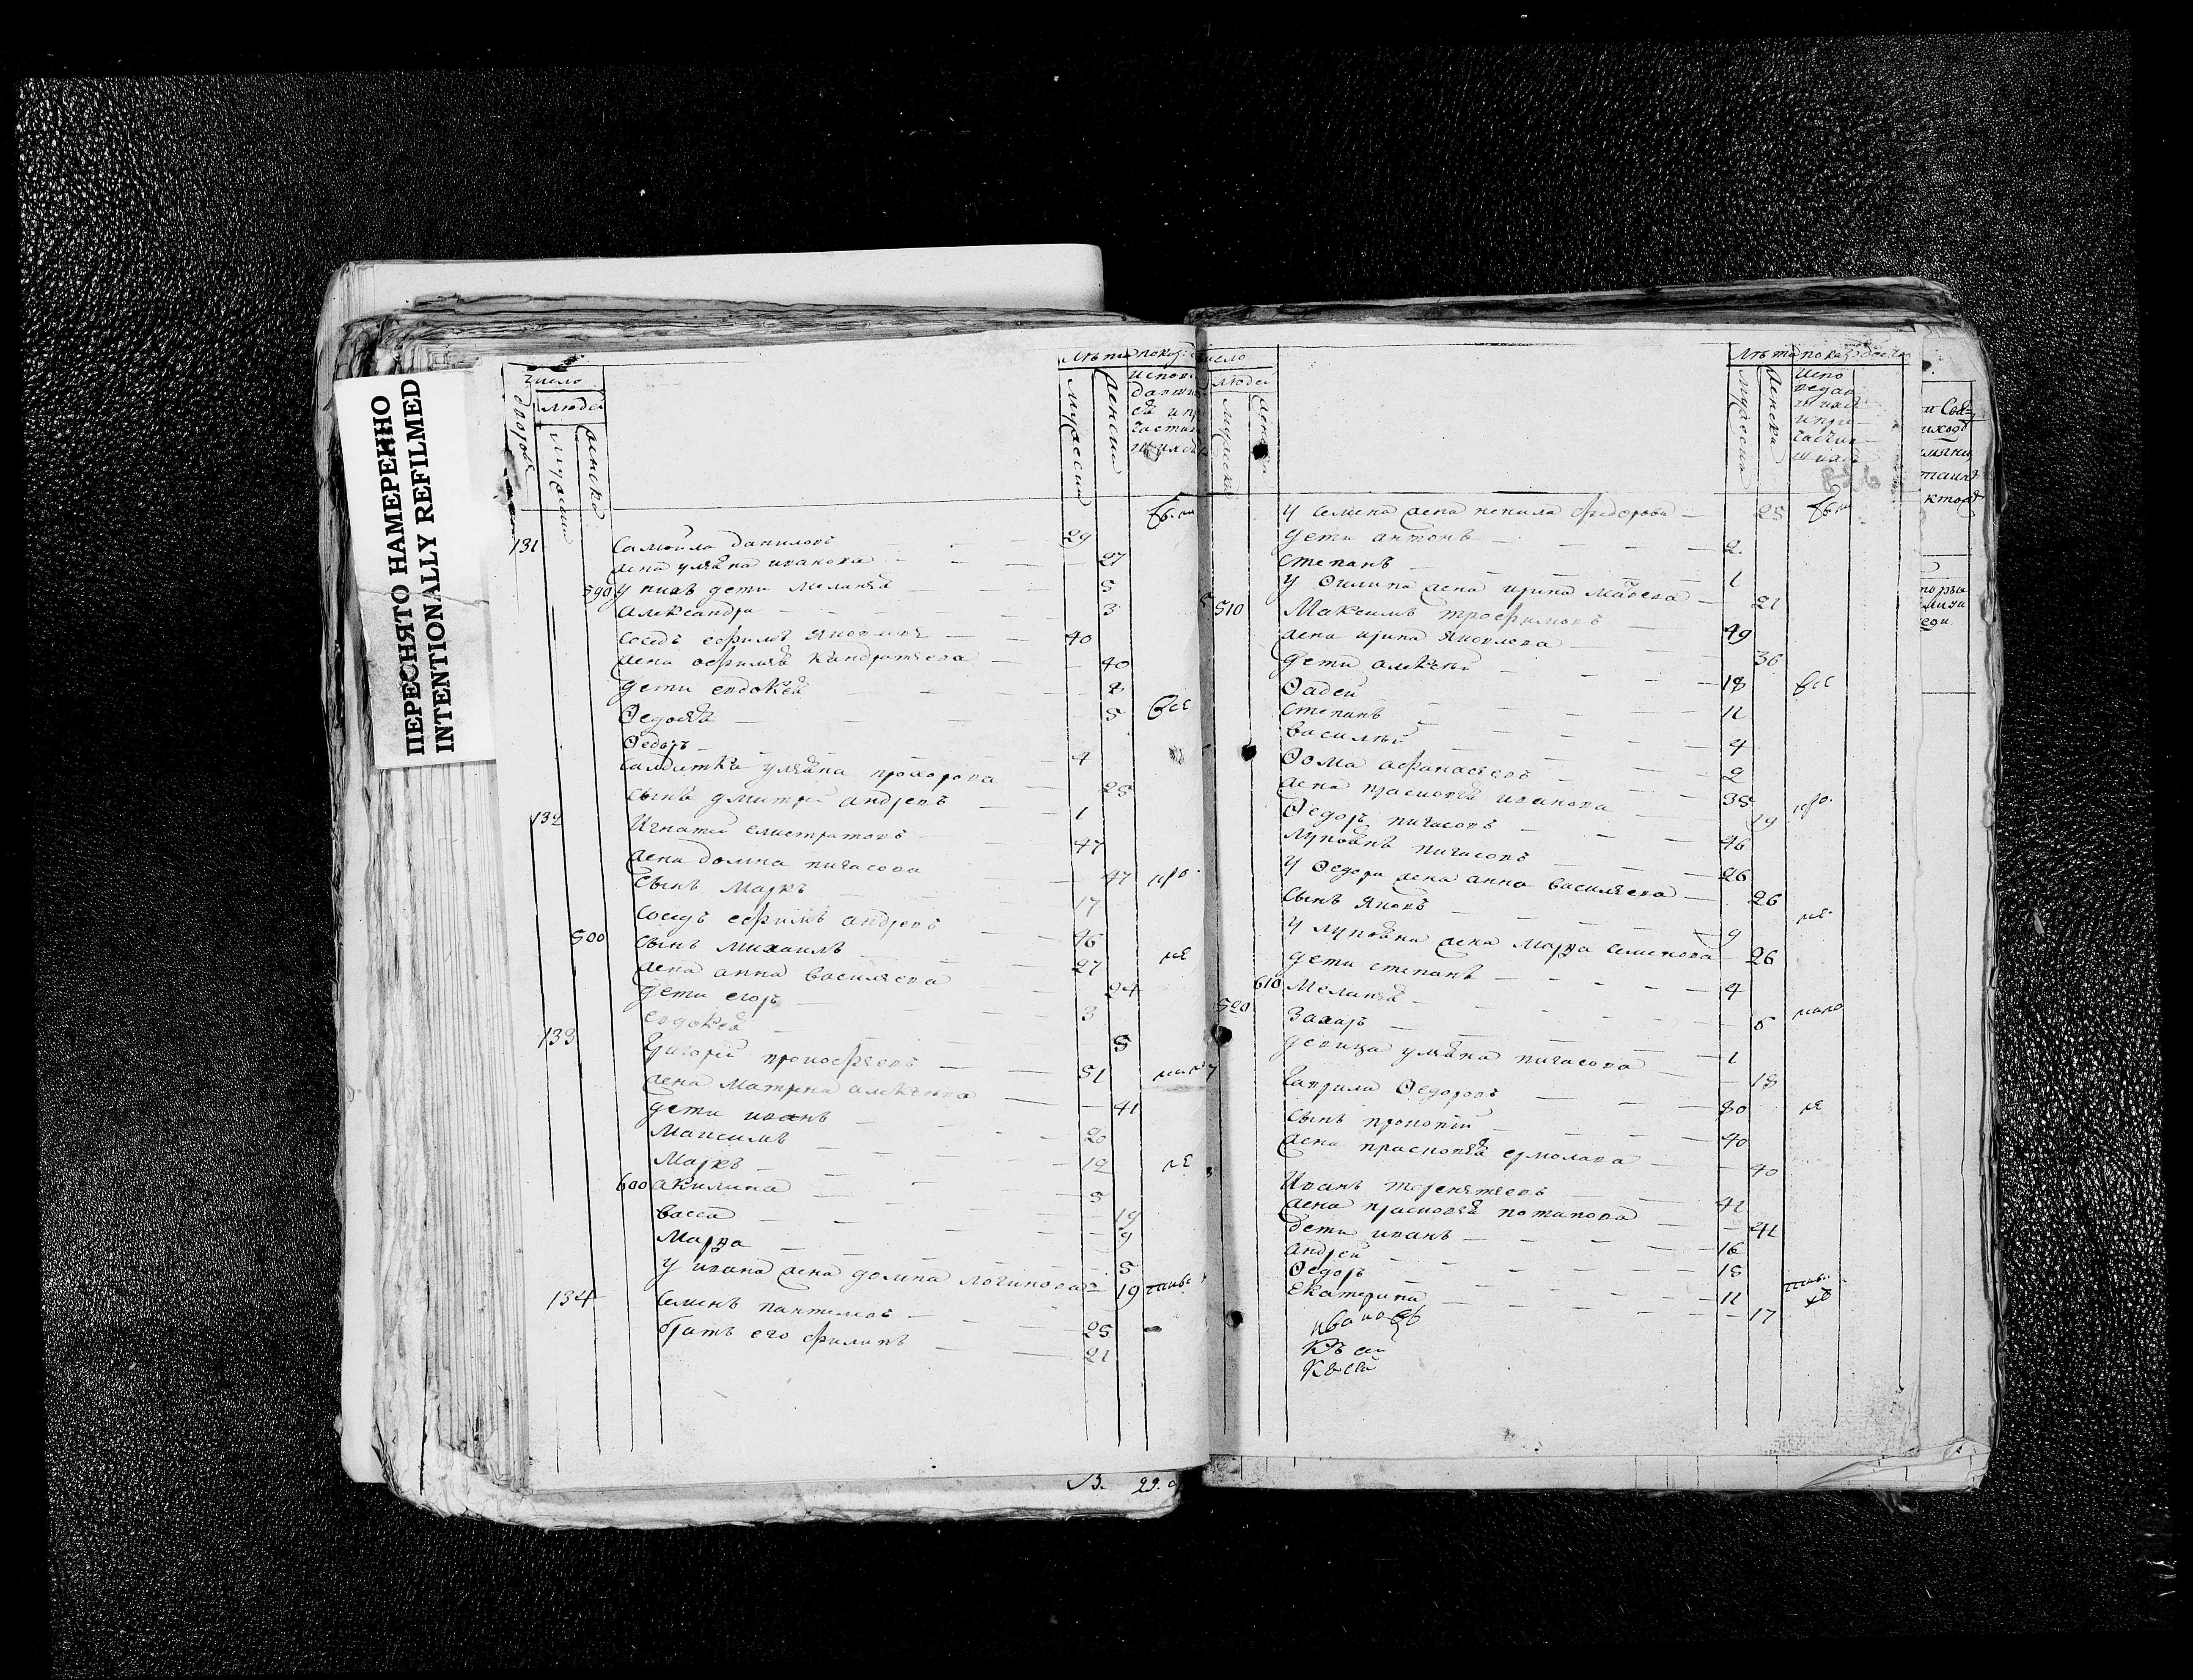 ПЕРЕСНЯТО НАМЕРЕННО
INTENTIONALLY REFILMED
число
дворовъ
людей
мужеска
женска
мужеский
женский
131 Самойла даниловъ 29
жена уляна иванова 27
590 у нихъ дети меланья 5
александра 3
соседъ ефимъ яковлевъ 40
жена офимья кандратьева 40
дети евдокея 8
Ѳедосья 5 все
Ѳедоръ 4
салдатка уляна прохорова 25
сынъ дмитрей андреевъ 1
132 Игнатей елистратовъ 47
жена домна пигасова 47
сынъ маркъ 17
соседъ ефимъ андреевъ 46
500 сынъ михаилъ 27
жена анна васильева 24
дети егоръ 3
евдокея 5
133 Григорей прокофьевъ 51
жена матрена алексеева 41
дети иванъ 20
Максимъ 12
Маркъ 5
600 акилина 19
васса 9
Марѳа 5
у ивана жена домна логинова 19
134 Семенъ пантелеевъ 25
братъ его филипъ 21
В. 29.
число
людей
мужеска
женска
мужеска
женска
у семена жена ненила федорова 25
дети антонъ 2
степанъ 1
у Ѳилипа жена ирина 21
510 Максимъ трофимовъ 49
жена ирина яковлева 36
дети алексей 18 все
Ѳадей 11
степанъ 4
василей 2
Ѳома афанасьевъ 35
жена прасковья иванова 19
Ѳедоръ пигасовъ 46
лукьянъ пигасовъ 26
у Ѳедора жена анна васильева 26
сынъ яковъ 9
у лукьяна жена марѳа семенова 26
дети степанъ 4
610 Меланья 6
520 Захаръ 1
девица уляна пигасова 18
гаврила Ѳедоровъ 80
сынъ прокопей 40
жена прасковья ермолаева 40
Иванъ терентьевъ 42
жена прасковья потапова 42
дети иванъ 16
андрей 15
Ѳедоръ 11
Екатерина 17